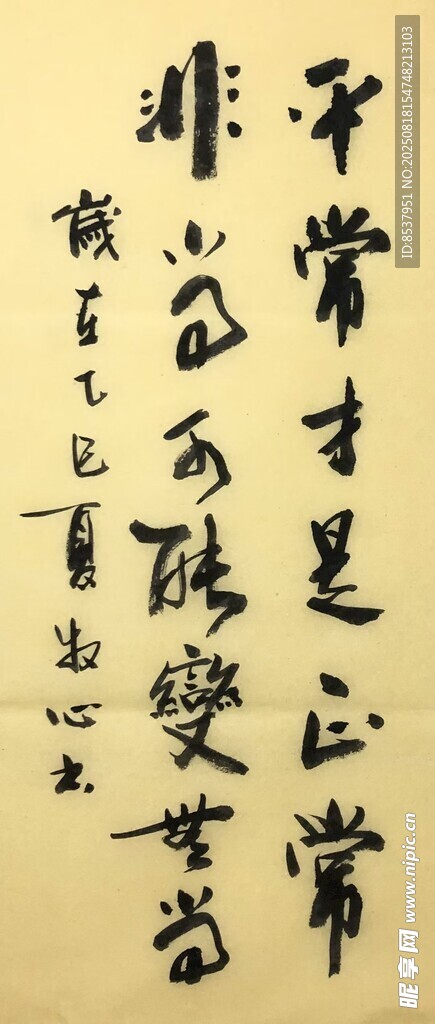 平常才是正常
非常可能變無常
歲在乙巳夏牧心书
ID:8537951 NO:20250818154748213103
昵享网 www.nipic.cn